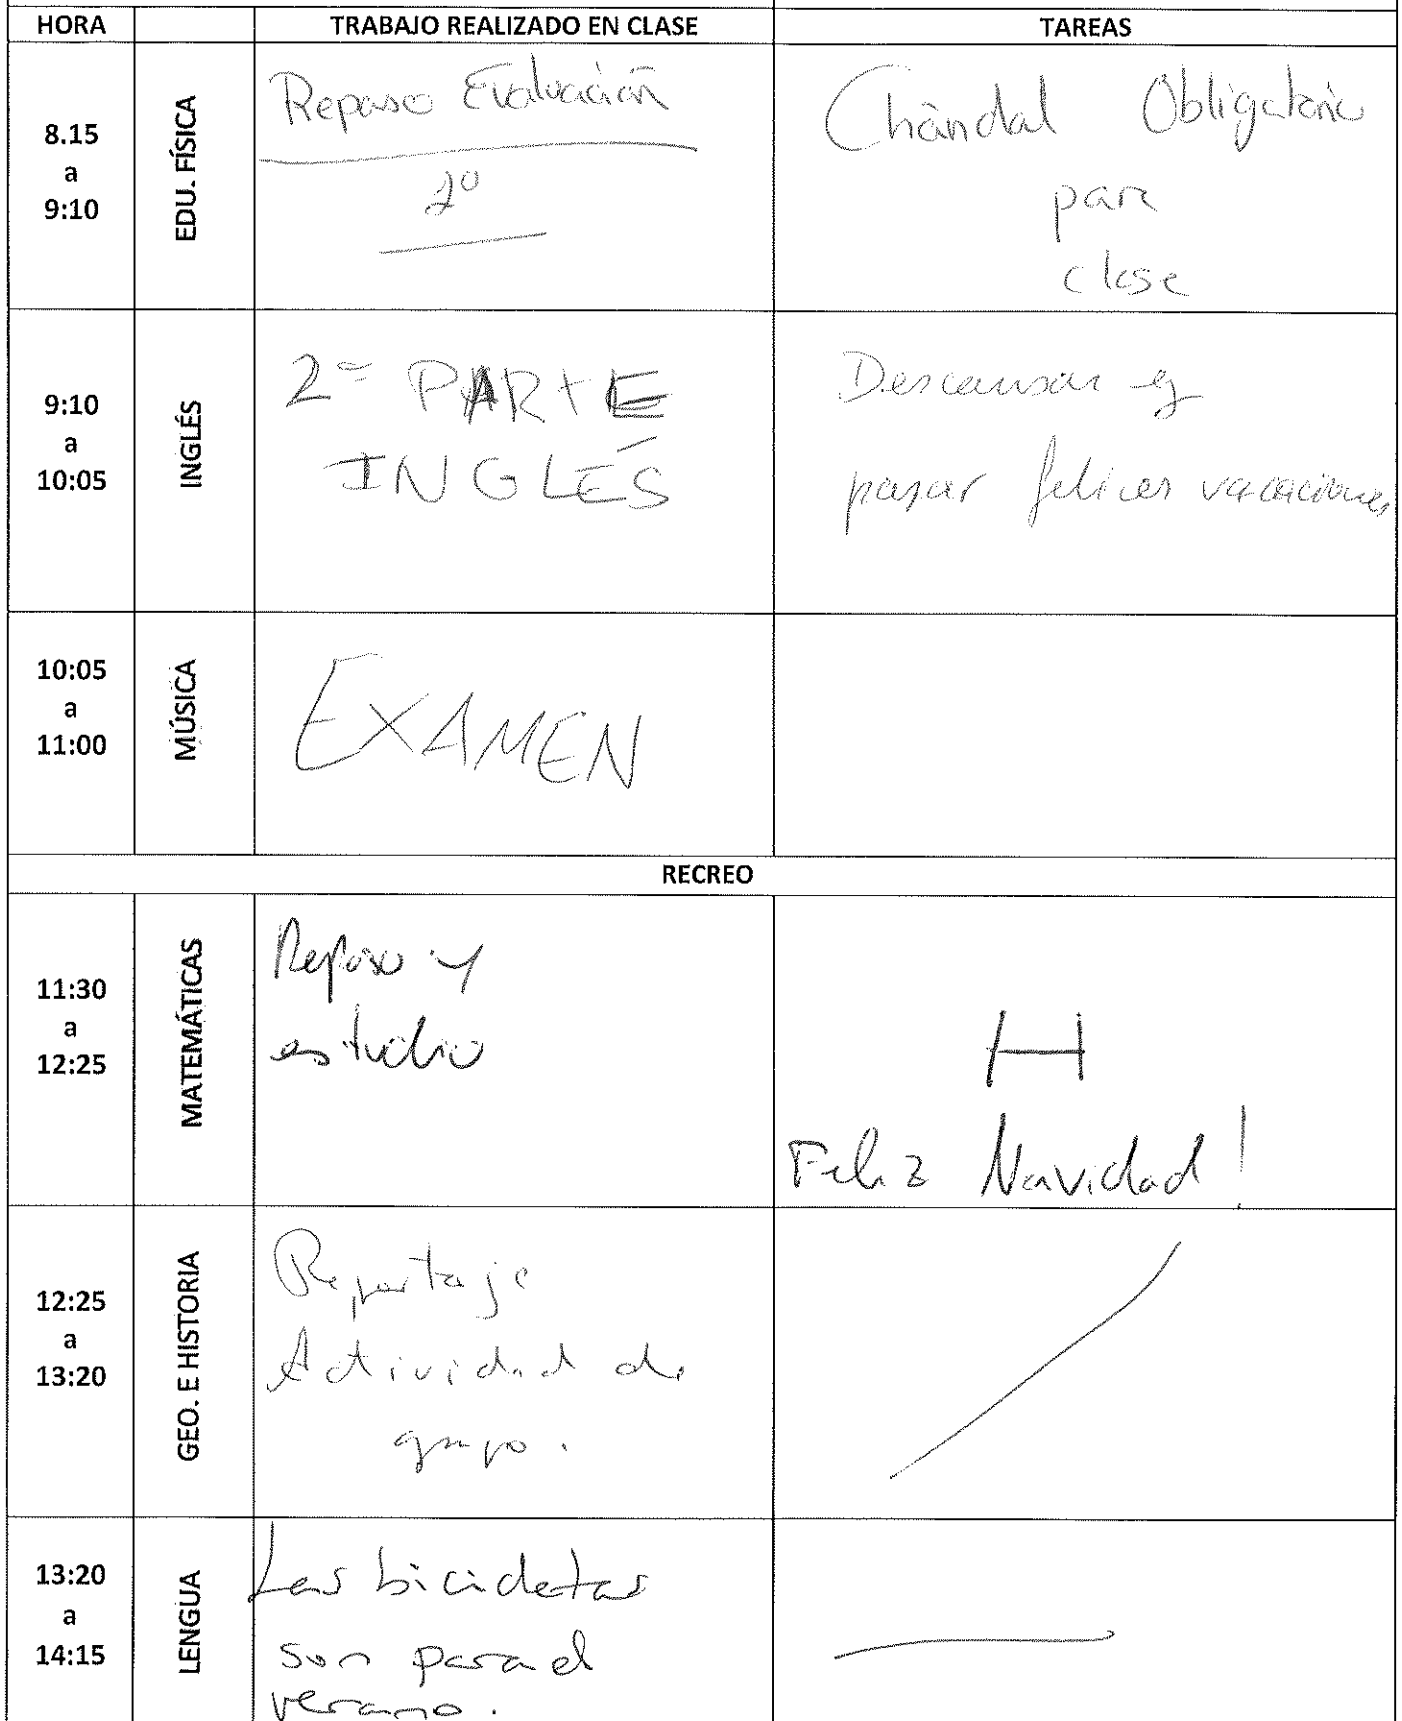 HORA TRABAJO REALIZADO EN CLASE TAREAS
8.15
a
9:10
EDU. FÍSICA
Repaso Evaluación
2º
Chándal Obligatorio
para
clase
9:10
a
10:05
INGLÉS
2ª PARTE
INGLÉS
Descansar y
pasar felices vacaciones
10:05
a
11:00
MÚSICA
EXAMEN
RECREO
11:30
a
12:25
MATEMÁTICAS
Repaso y
estudio
Feliz Navidad!
12:25
a
13:20
GEO. E HISTORIA
Reportaje
Actividad de
grupo.
13:20
a
14:15
LENGUA
Las bicicletas
son para el
verano.